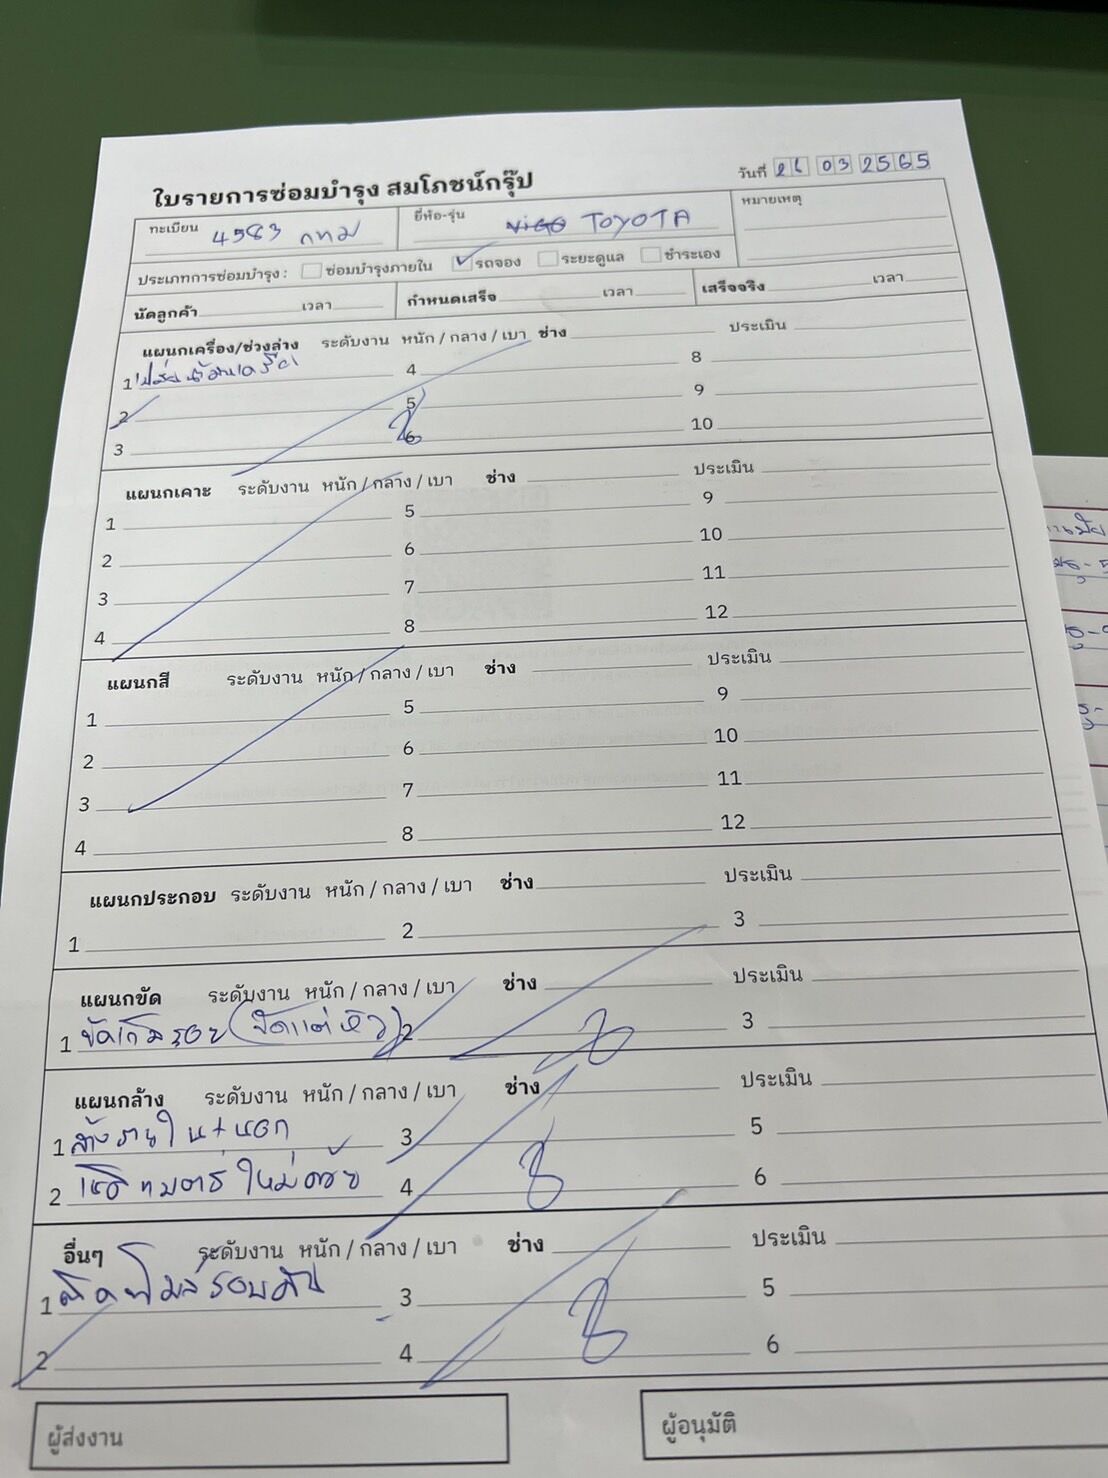 ใบรายการซ่อมบำรุง สมโภชน์กรุ๊ป
วันที่ 26 03 2565
ทะเบียน 4583 กทม ยี่ห้อ-รุ่น ViGO TOYOTA หมายเหตุ
ประเภทการซ่อมบำรุง : ซ่อมบำรุงภายใน รถจอง ระยะดูแล ชำระเอง
นัดลูกค้า เวลา กำหนดเสร็จ เวลา เสร็จจริง เวลา
แผนกเครื่อง/ช่วงล่าง ระดับงาน หนัก / กลาง / เบา ช่าง ประเมิน
1 4 8
2 5 9
3 6 10
แผนกเคาะ ระดับงาน หนัก / กลาง / เบา ช่าง ประเมิน
1 5 9
2 6 10
3 7 11
4 8 12
แผนกสี ระดับงาน หนัก / กลาง / เบา ช่าง ประเมิน
1 5 9
2 6 10
3 7 11
4 8 12
แผนกประกอบ ระดับงาน หนัก / กลาง / เบา ช่าง ประเมิน
1 2 3
แผนกขัด ระดับงาน หนัก / กลาง / เบา ช่าง ประเมิน
1 ขัดเก็บรอย 2 3
แผนกล้าง ระดับงาน หนัก / กลาง / เบา ช่าง ประเมิน
1 ล้างภายใน+นอก 3 5
2 ใหม่ด้วย 4 6
อื่นๆ ระดับงาน หนัก / กลาง / เบา ช่าง ประเมิน
1 ติดฟิล์มรอบคัน 3 5
2 4 6
ผู้ส่งงาน ผู้อนุมัติ